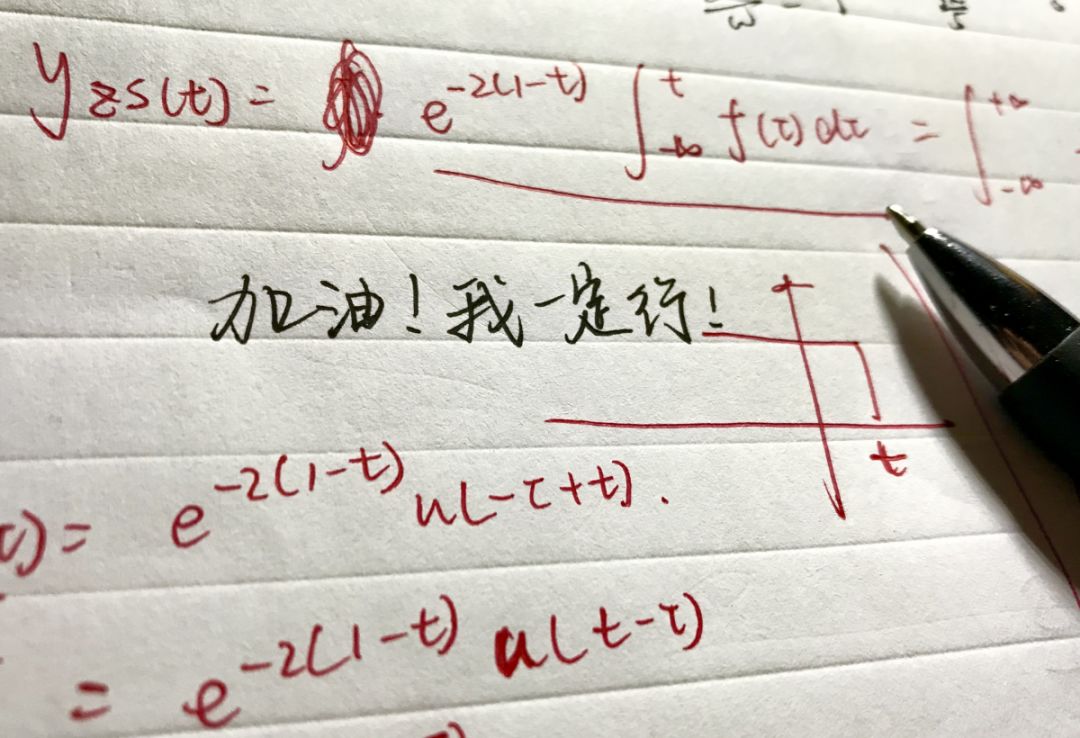 y_zs(t) = e^{-2(1-t)} ∫_{-∞}^{t} f(τ)dτ = ∫_{-∞}^{+∞}
加油！我一定行！
t
τ) = e^{-2(1-t)} u(-τ+t).
= e^{-2(1-t)} u(t-τ)